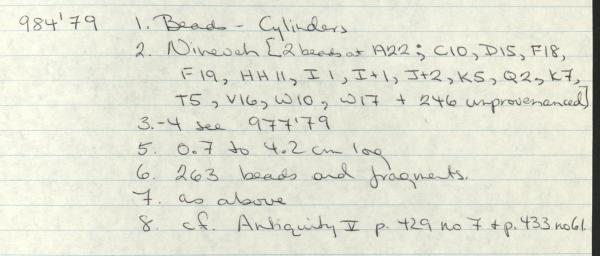 984'79 1. Beads - Cylinders
2. Nineveh [2 beads at A22; C10, D15, F18,
F19, HH11, I1, I+1, J+2, K5, Q2, K7,
T5, V16, W10, W17 + 246 unprovenanced]
3.-4 see 977'79
5. 0.7 to 4.2 cm long
6. 263 beads and fragments.
7. as above
8. cf. Antiquity V p. 429 no 7 + p. 433 no 61.